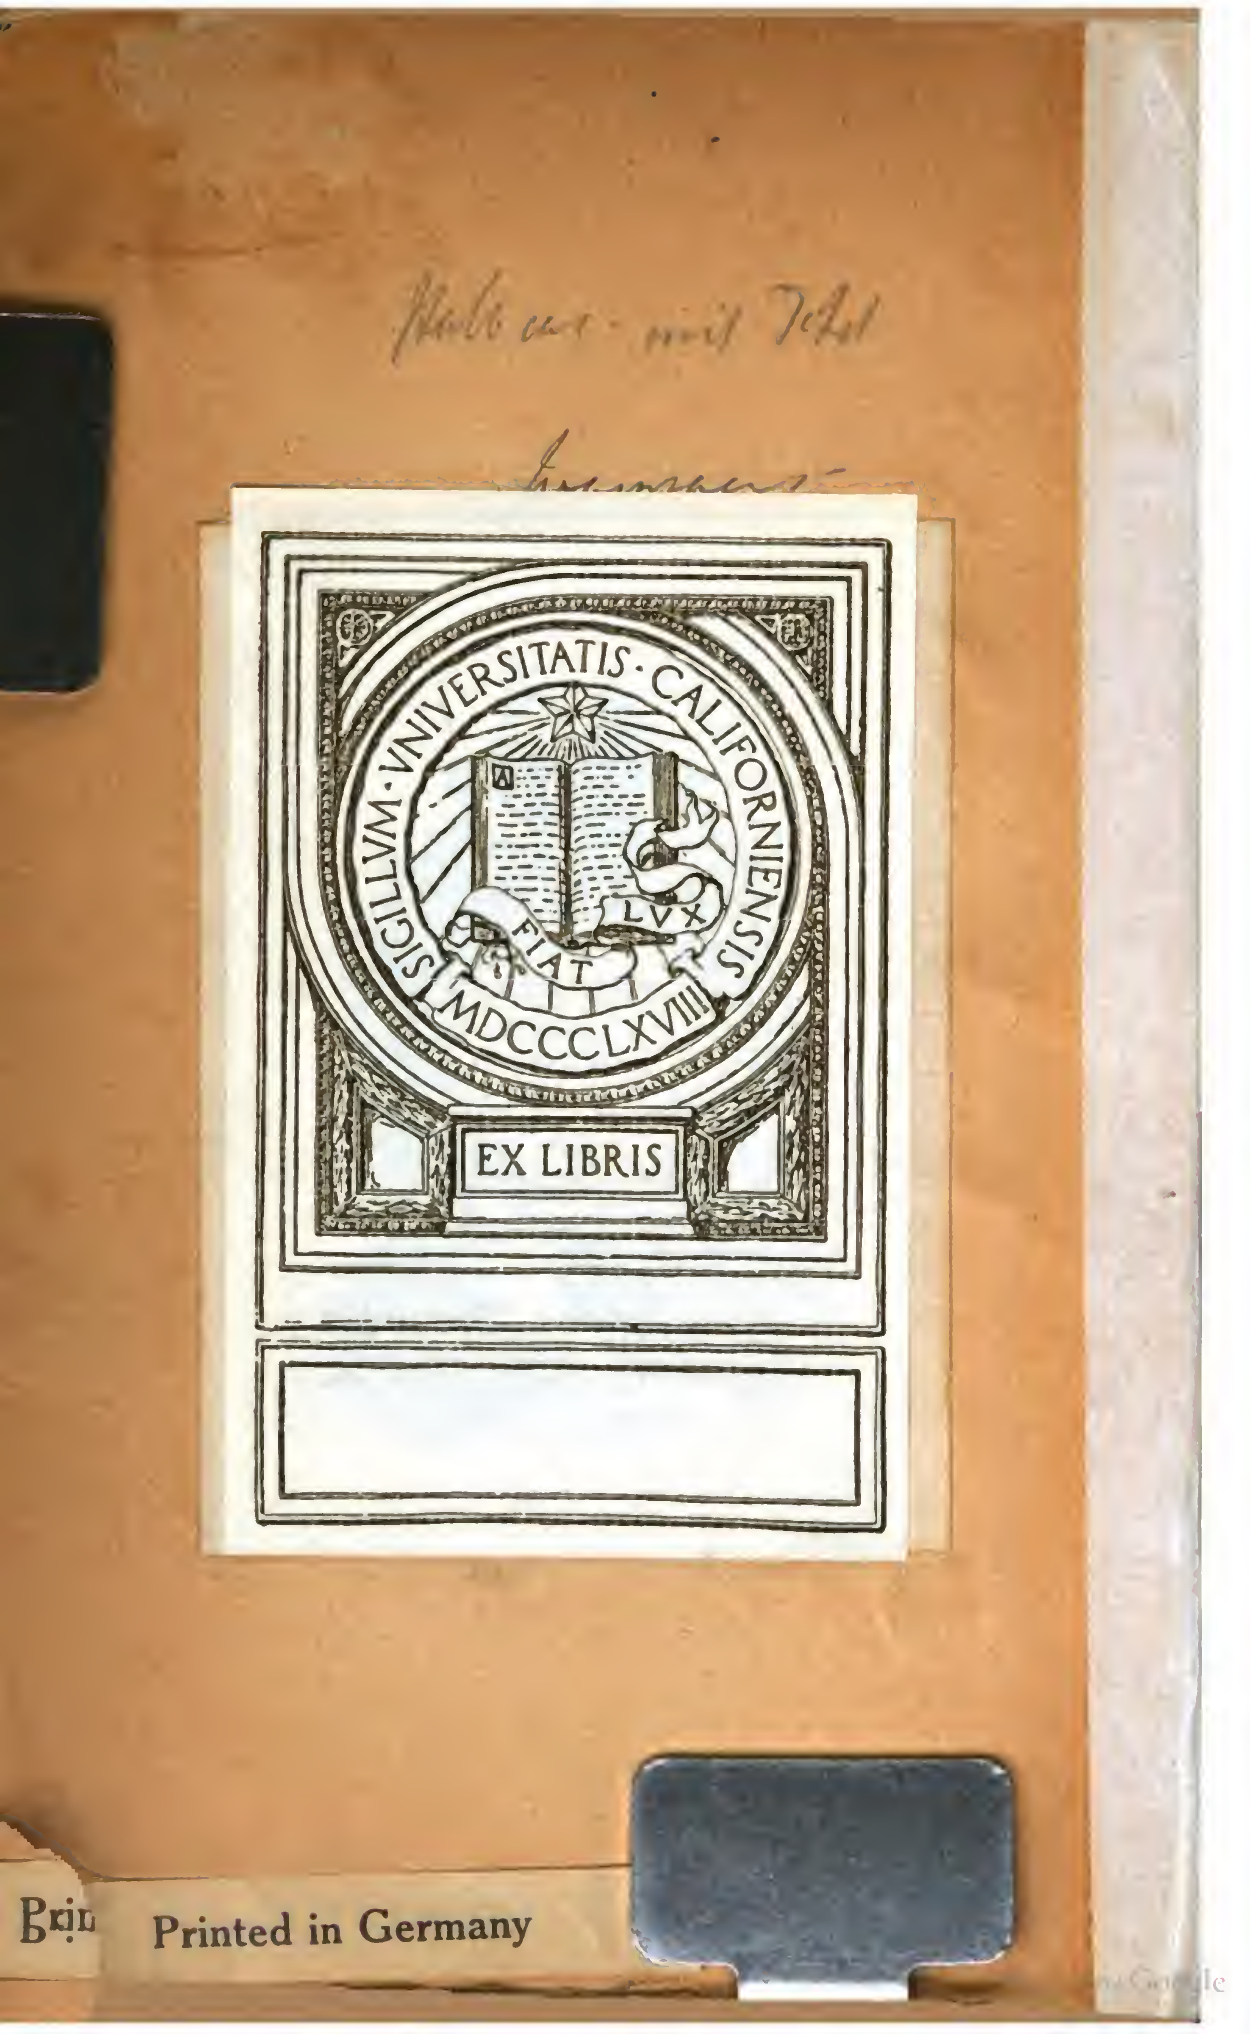 mit Titel
SIGILLVM · VNIVERSITATIS · CALIFORNIENSIS
A
FIAT LVX
MDCCCLXVIIII
EX LIBRIS
Prin
Printed in Germany